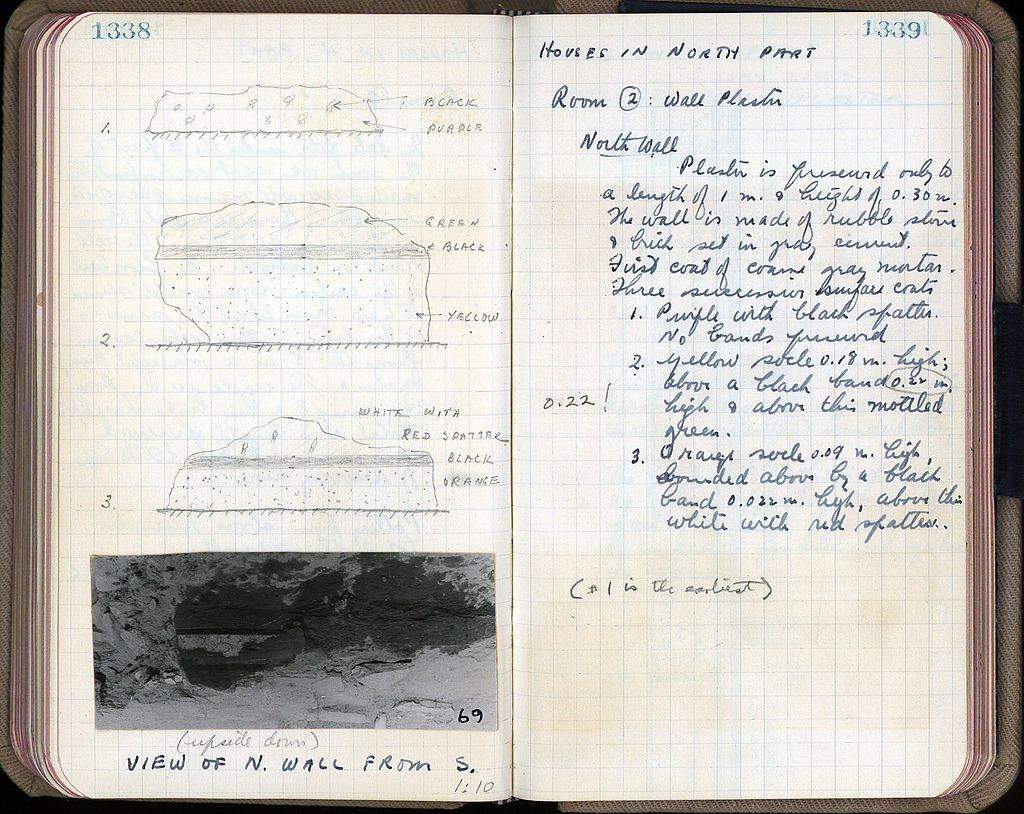 1338
BLACK
PURPLE
1.
GREEN
BLACK
YELLOW
2.
WHITE WITH
RED SPATTER
BLACK
ORANGE
3.
69
(upside down)
VIEW OF N. WALL FROM S.
1:10
1339
HOUSES IN NORTH PART
Room 2: Wall Plaster
North Wall
Plaster is preserved only to
a length of 1 m. & height of 0.30 m.
The wall is made of rubble stone
& brick set in gray cement.
First coat of coarse gray mortar.
Three successive surface coats
1. Purple with black spatter.
No bands preserved
2. Yellow socle 0.18 m. high;
above a black band 0.22 m.
0.22!
high & above this mottled
green.
3. Orange socle 0.09 m. high,
bounded above by a black
band 0.022 m. high, above this
white with red spatter.
(#1 is the earliest)